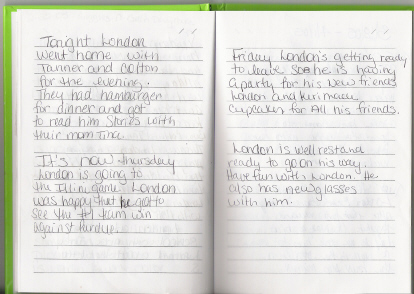 Tonight London
Went home with
Tanner and Colton
for the evening.
They had hamburger
for dinner and got
to read him Stories with
their mom Tina.
It's now thursday
London is going to
the Illini game London
was happy that he got to
see the team win
against Purdue.
Friday London's getting ready
to leave so he is having
a party for his New friends
London and
Cupcakes for All his friends.
London is well rest and
ready to go on his way.
Have fun with London. He
also has new glasses
with him.